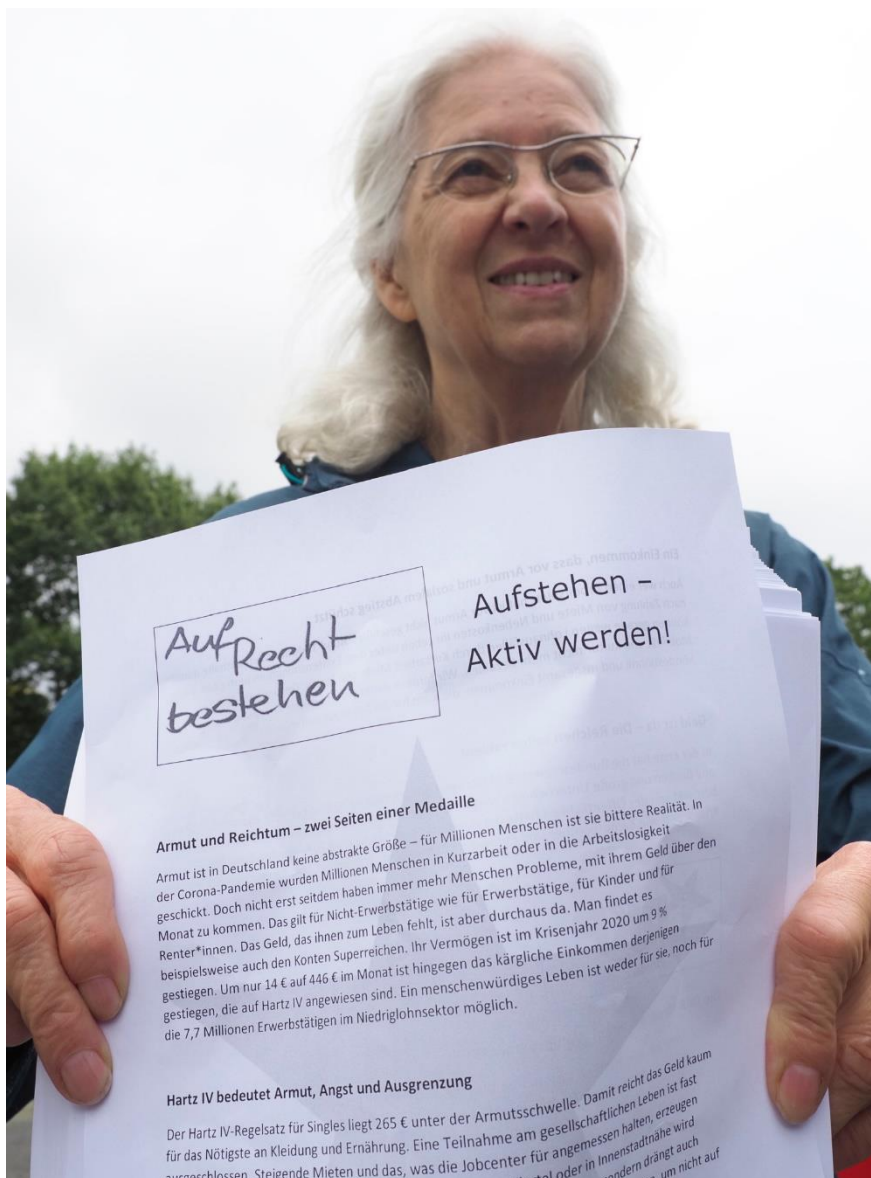 Auf
Recht
bestehen
Aufstehen –
Aktiv werden!
Armut und Reichtum – zwei Seiten einer Medaille
Armut ist in Deutschland keine abstrakte Größe – für Millionen Menschen ist sie bittere Realität. In
der Corona-Pandemie wurden Millionen Menschen in Kurzarbeit oder in die Arbeitslosigkeit
geschickt. Doch nicht erst seitdem haben immer mehr Menschen Probleme, mit ihrem Geld über den
Monat zu kommen. Das gilt für Nicht-Erwerbstätige wie für Erwerbstätige, für Kinder und für
Renter*innen. Das Geld, das ihnen zum Leben fehlt, ist aber durchaus da. Man findet es
beispielsweise auch den Konten Superreichen. Ihr Vermögen ist im Krisenjahr 2020 um 9 %
gestiegen. Um nur 14 € auf 446 € im Monat ist hingegen das kärgliche Einkommen derjenigen
gestiegen, die auf Hartz IV angewiesen sind. Ein menschenwürdiges Leben ist weder für sie, noch für
die 7,7 Millionen Erwerbstätigen im Niedriglohnsektor möglich.
Hartz IV bedeutet Armut, Angst und Ausgrenzung
Der Hartz IV-Regelsatz für Singles liegt 265 € unter der Armutsschwelle. Damit reicht das Geld kaum
für das Nötigste an Kleidung und Ernährung. Eine Teilnahme am gesellschaftlichen Leben ist fast
ausgeschlossen. Steigende Mieten und das, was die Jobcenter für angemessen halten, erzeugen
oder in Innenstadtnähe wird
sondern drängt auch
um nicht auf